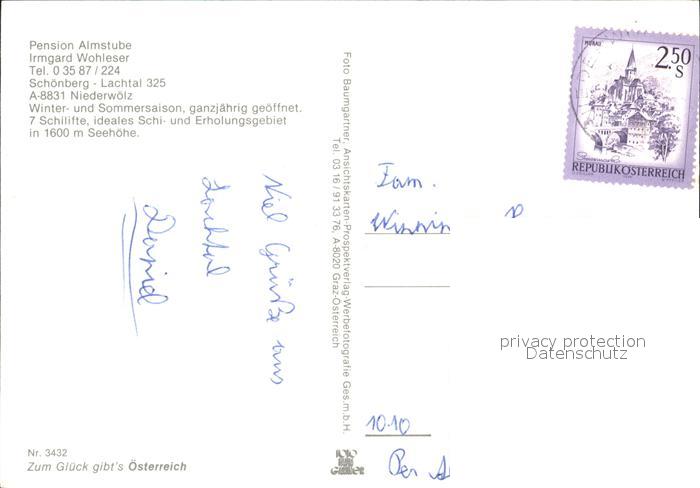 Pension Almstube
Irmgard Wohleser
Tel. 0 35 87 / 224
Schönberg - Lachtal 325
A-8831 Niederwölz
Winter- und Sommersaison, ganzjährig geöffnet.
7 Schilifte, ideales Schi- und Erholungsgebiet
in 1600 m Seehöhe.
Viel Grüße aus
Lachtal
David
Nr. 3432
Zum Glück gibt's Österreich
Foto Baumgartner, Ansichtskarten-Prospektverlag-Werbefotografie Ges.m.b.H.
Tel. 03 16 / 91 33 76, A-8020 Graz-Österreich
MURAU
2.50
S
REPUBLIK ÖSTERREICH
Fam.
privacy protection
Datenschutz
1010
Per